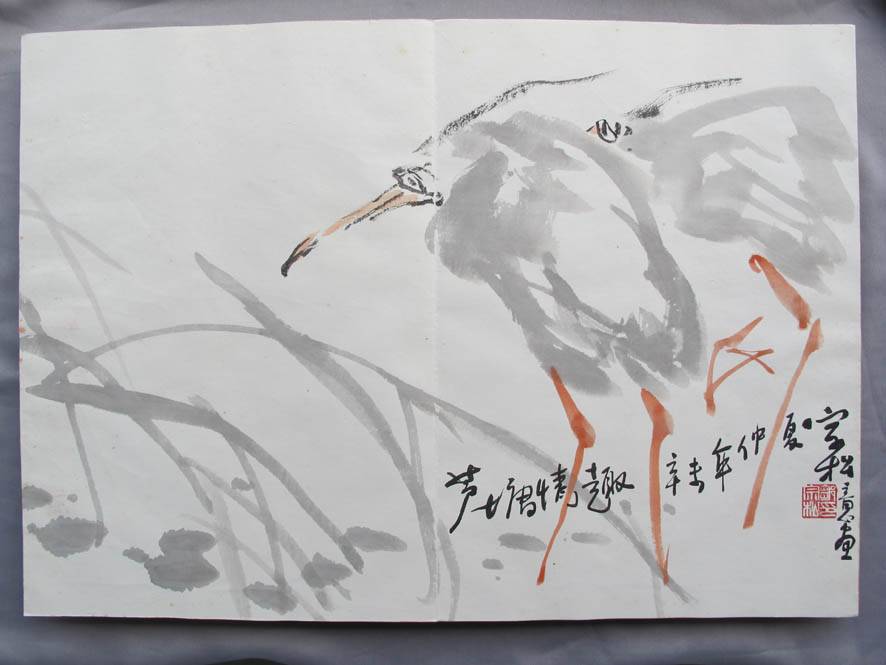 芦塘情趣 辛未年仲夏
宗松意画